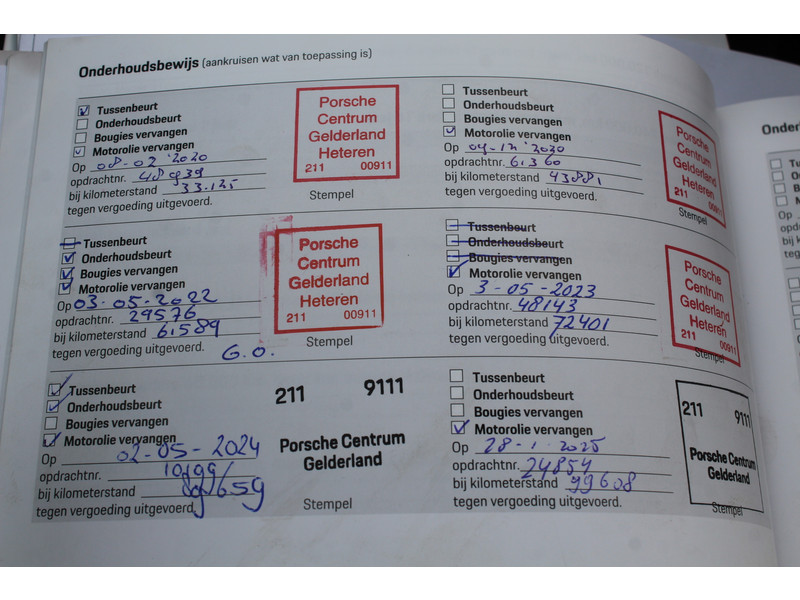 Onderhoudsbewijs (aankruisen wat van toepassing is)
Tussenbeurt
Onderhoudsbeurt
Bougies vervangen
Motorolie vervangen
Op 08-02 '2020
opdrachtnr. 48939
bij kilometerstand 33.125
tegen vergoeding uitgevoerd.
Porsche
Centrum
Gelderland
Heteren
211 00911
Stempel
Tussenbeurt
Onderhoudsbeurt
Bougies vervangen
Motorolie vervangen
Op 2020
opdrachtnr. 6360
bij kilometerstand 43881
tegen vergoeding uitgevoerd.
Porsche
Centrum
Gelderland
Heteren
211 00911
Stempel
Tussenbeurt
Onderhoudsbeurt
Bougies vervangen
Motorolie vervangen
Op 03-05-2022
opdrachtnr. 29576
bij kilometerstand 61589
tegen vergoeding uitgevoerd. G.O.
Porsche
Centrum
Gelderland
Heteren
211 00911
Stempel
Tussenbeurt
Onderhoudsbeurt
Bougies vervangen
Motorolie vervangen
Op 3-05-2023
opdrachtnr. 48143
bij kilometerstand 72401
tegen vergoeding uitgevoerd.
Porsche
Centrum
Gelderland
Heteren
211 00911
Stempel
Tussenbeurt
Onderhoudsbeurt
Bougies vervangen
Motorolie vervangen
Op 02-05-2024
opdrachtnr.
bij kilometerstand
tegen vergoeding uitgevoerd.
211 9111
Porsche Centrum
Gelderland
Stempel
Tussenbeurt
Onderhoudsbeurt
Bougies vervangen
Motorolie vervangen
Op 28-1-2025
opdrachtnr. 24854
bij kilometerstand 99608
tegen vergoeding uitgevoerd.
211 9111
Porsche Centrum
Gelderland
Stempel